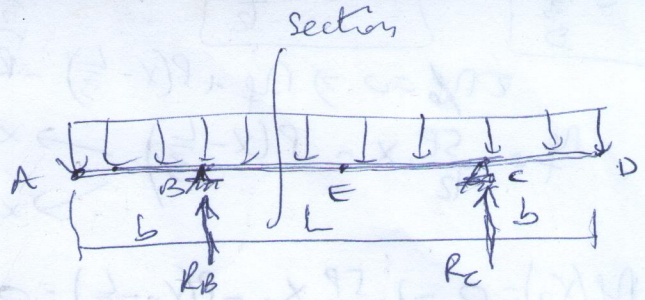 section
A B E C D
b L b
R_B R_C